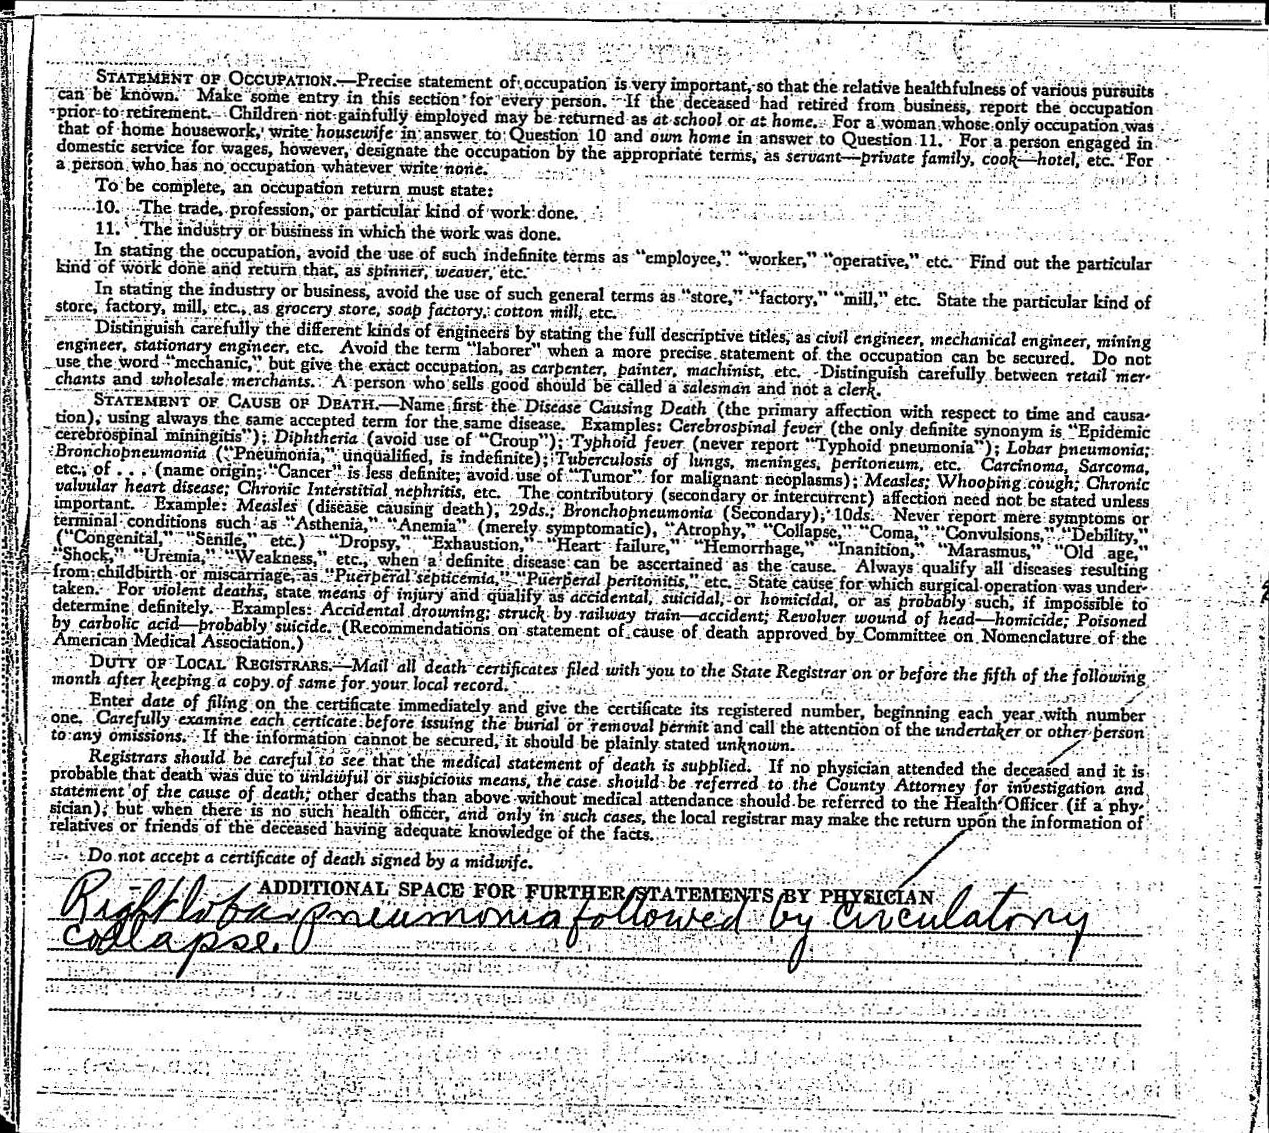 STATEMENT OF OCCUPATION.—Precise statement of occupation is very important, so that the relative healthfulness of various pursuits
can be known. Make some entry in this section for every person. If the deceased had retired from business, report the occupation
prior to retirement. Children not gainfully employed may be returned as at school or at home. For a woman whose only occupation was
that of home housework, write housewife in answer to Question 10 and own home in answer to Question 11. For a person engaged in
domestic service for wages, however, designate the occupation by the appropriate terms, as servant—private family, cook—hotel, etc. For
a person who has no occupation whatever write none.
To be complete, an occupation return must state:
10. The trade, profession, or particular kind of work done.
11. The industry or business in which the work was done.
In stating the occupation, avoid the use of such indefinite terms as "employee," "worker," "operative," etc. Find out the particular
kind of work done and return that, as spinner, weaver, etc.
In stating the industry or business, avoid the use of such general terms as "store," "factory," "mill," etc. State the particular kind of
store, factory, mill, etc., as grocery store, soap factory, cotton mill, etc.
Distinguish carefully the different kinds of engineers by stating the full descriptive titles, as civil engineer, mechanical engineer, mining
engineer, stationary engineer, etc. Avoid the term "laborer" when a more precise statement of the occupation can be secured. Do not
use the word "mechanic," but give the exact occupation, as carpenter, painter, machinist, etc. Distinguish carefully between retail mer-
chants and wholesale merchants. A person who sells good should be called a salesman and not a clerk.
STATEMENT OF CAUSE OF DEATH.—Name first the Disease Causing Death (the primary affection with respect to time and causa-
tion), using always the same accepted term for the same disease. Examples: Cerebrospinal fever (the only definite synonym is "Epidemic
cerebrospinal miningitis"); Diphtheria (avoid use of "Croup"); Typhoid fever (never report "Typhoid pneumonia"); Lobar pneumonia;
Bronchopneumonia ("Pneumonia," unqualified, is indefinite); Tuberculosis of lungs, meninges, peritoneum, etc. Carcinoma, Sarcoma,
etc., of . . . (name origin; "Cancer" is less definite; avoid use of "Tumor" for malignant neoplasms); Measles; Whooping cough; Chronic
valvular heart disease; Chronic Interstitial nephritis, etc. The contributory (secondary or intercurrent) affection need not be stated unless
important. Example: Measles (disease causing death), 29ds.; Bronchopneumonia (Secondary), 10ds. Never report mere symptoms or
terminal conditions such as "Asthenia," "Anemia" (merely symptomatic), "Atrophy," "Collapse," "Coma," "Convulsions," "Debility,"
("Congenital," "Senile," etc.) "Dropsy," "Exhaustion," "Heart failure," "Hemorrhage," "Inanition," "Marasmus," "Old age,"
"Shock," "Uremia," "Weakness," etc., when a definite disease can be ascertained as the cause. Always qualify all diseases resulting
from childbirth or miscarriage, as "Puerperal septicemia," "Puerperal peritonitis," etc. State cause for which surgical operation was under-
taken. For violent deaths, state means of injury and qualify as accidental, suicidal, or homicidal, or as probably such, if impossible to
determine definitely. Examples: Accidental drowning; struck by railway train—accident; Revolver wound of head—homicide; Poisoned
by carbolic acid—probably suicide. (Recommendations on statement of cause of death approved by Committee on Nomenclature of the
American Medical Association.)
DUTY OF LOCAL REGISTRARS.—Mail all death certificates filed with you to the State Registrar on or before the fifth of the following
month after keeping a copy of same for your local record.
Enter date of filing on the certificate immediately and give the certificate its registered number, beginning each year with number
one. Carefully examine each certicate before issuing the burial or removal permit and call the attention of the undertaker or other person
to any omissions. If the information cannot be secured, it should be plainly stated unknown.
Registrars should be careful to see that the medical statement of death is supplied. If no physician attended the deceased and it is
probable that death was due to unlawful or suspicious means, the case should be referred to the County Attorney for investigation and
statement of the cause of death; other deaths than above without medical attendance should be referred to the Health Officer (if a phy-
sician); but when there is no such health officer, and only in such cases, the local registrar may make the return upon the information of
relatives or friends of the deceased having adequate knowledge of the facts.
Do not accept a certificate of death signed by a midwife.
ADDITIONAL SPACE FOR FURTHER STATEMENTS BY PHYSICIAN
Right lobar pneumonia followed by circulatory
collapse.